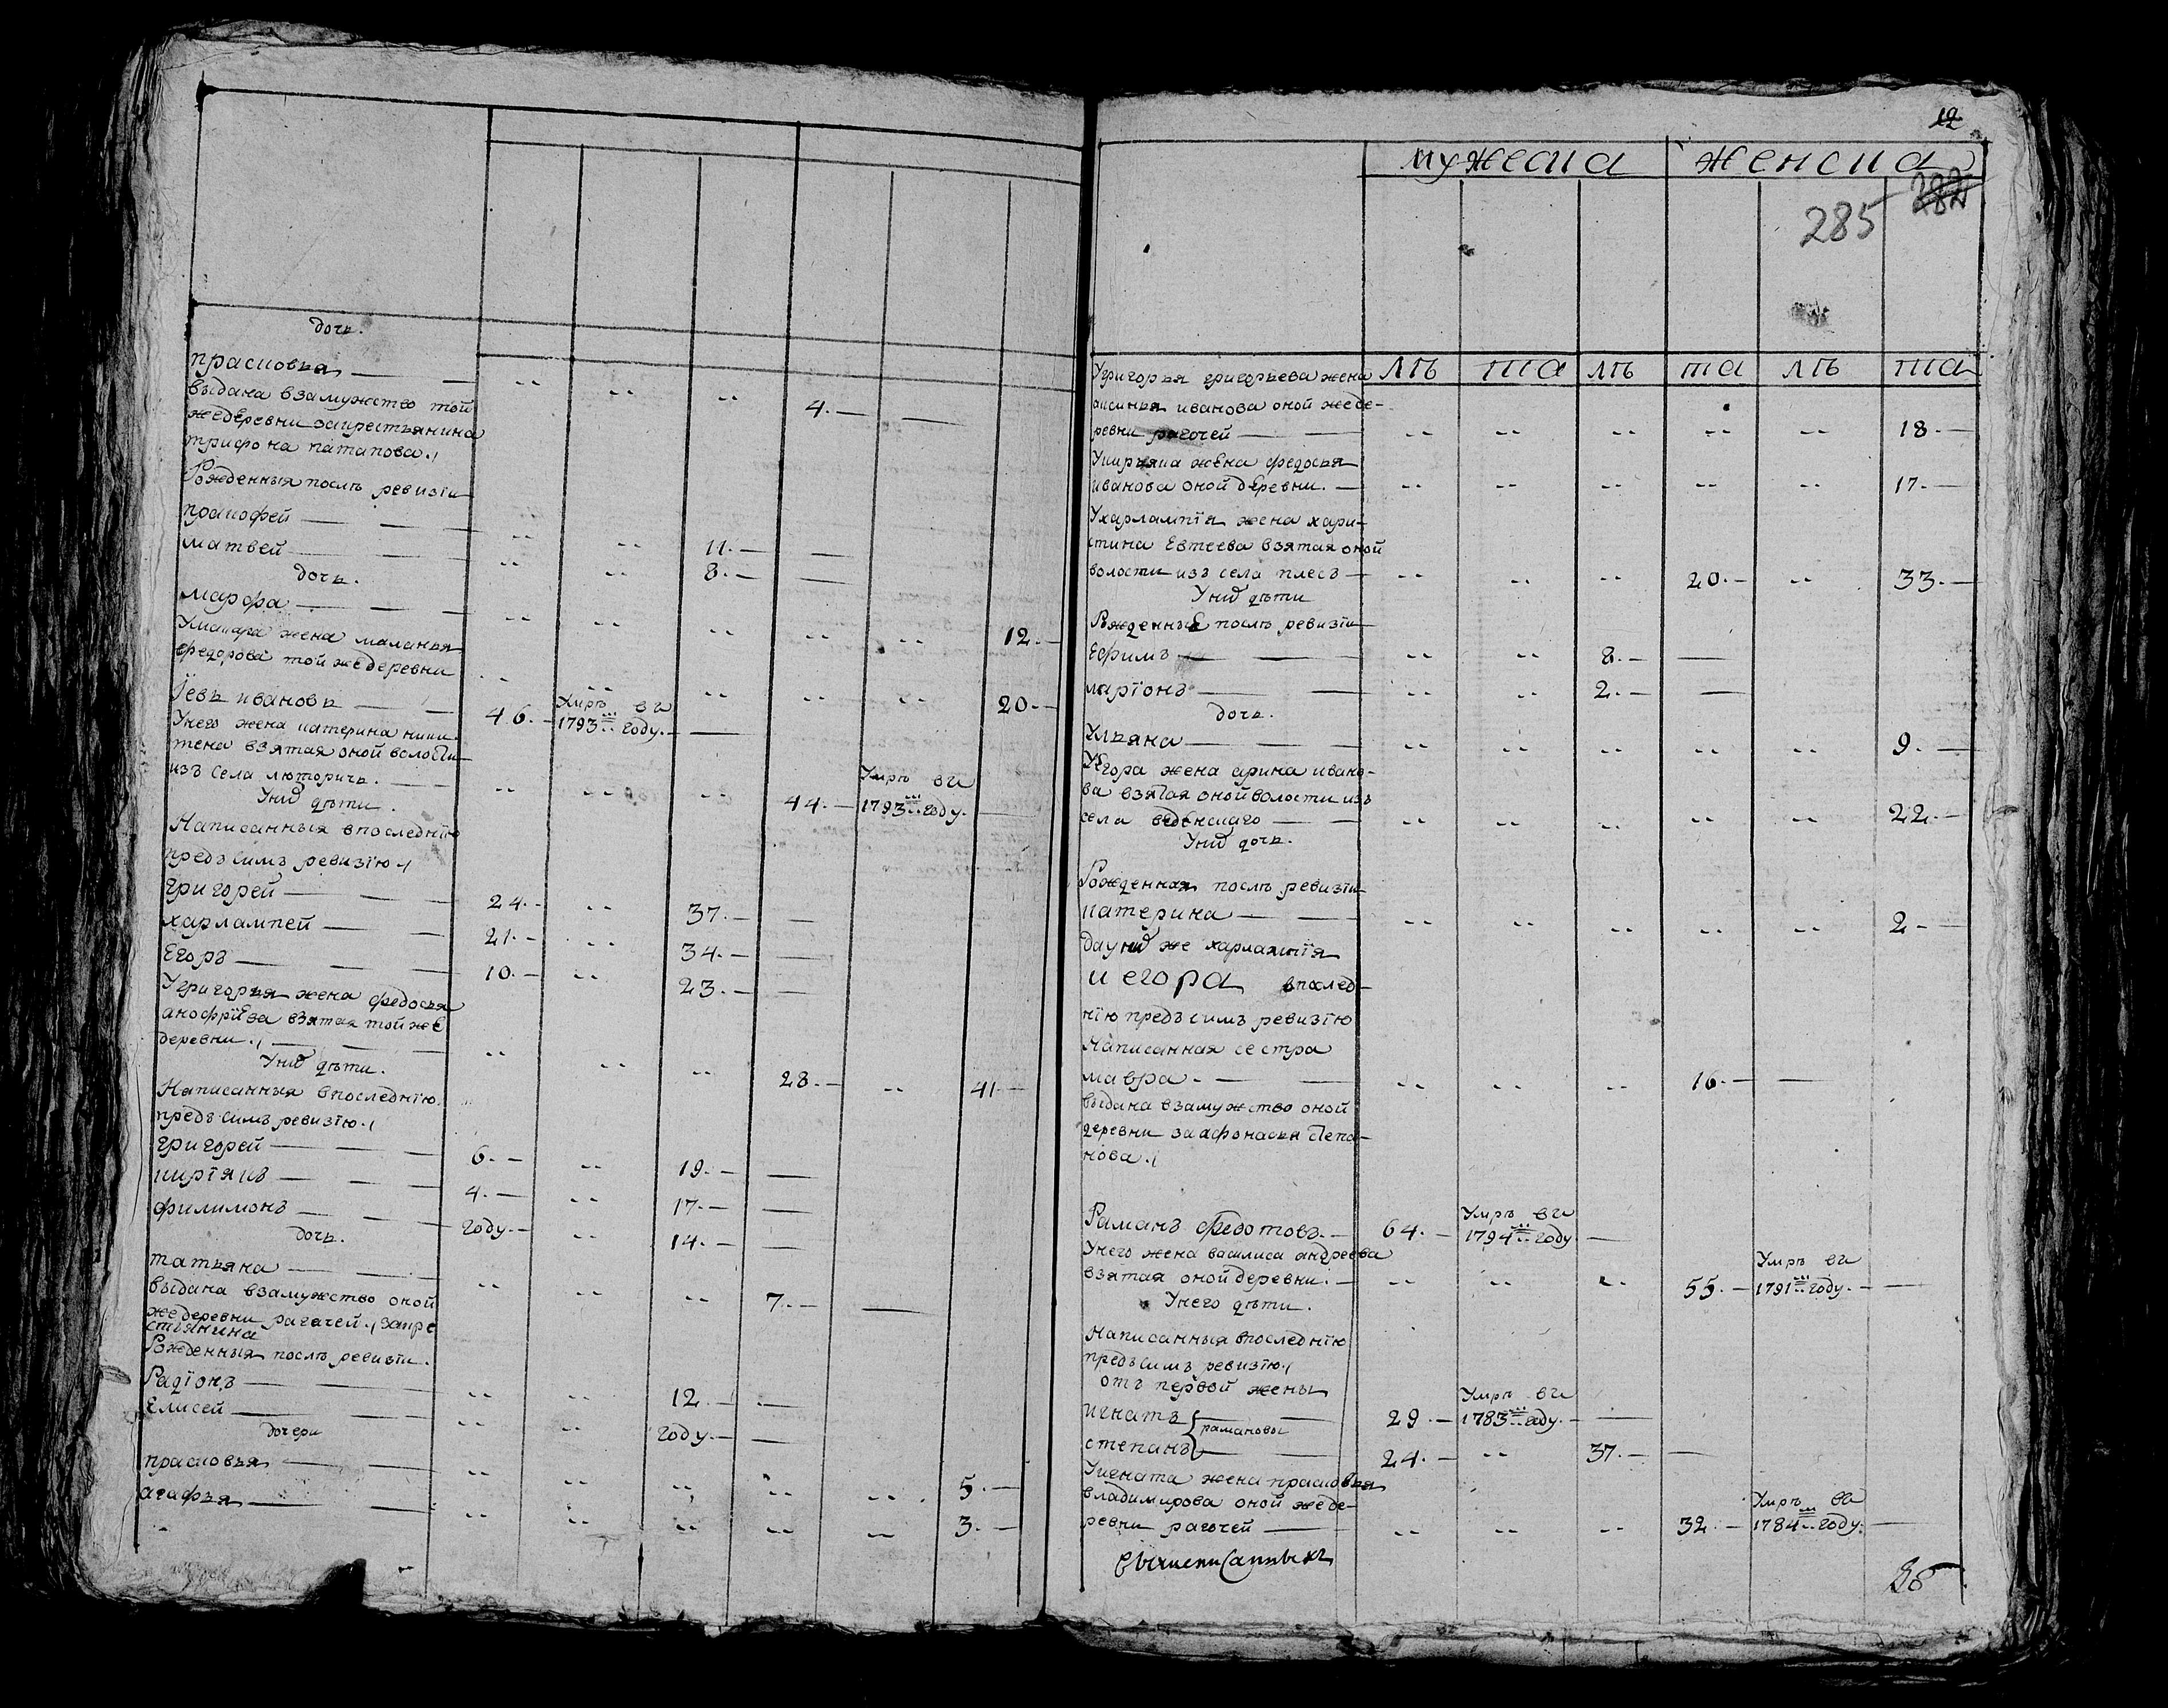 дочь.
прасковья — 4. —
выдана взамужство той
жедеревни закрестьянина
трифона патапова./
Рожденныя послѣ ревизїи
пракофей — 11. —
матвей — 8. —
дочь.
марфа — 12. —
Умакара жена маланья
федорова той жедеревни 20. —
Їевъ ивановъ — 46. — Умрѣ въ 1793м году. —
Унего жена катерина ники-
тена взятая оной волости
изъ села люторичь. — 44. — Умрѣ въ 1793м году. —
Уних дѣти.
Написанныя впоследнїю
предъ симъ ревизїю./
григорей — 24. — 37. —
харлампей — 21. — 34. —
Егоръ — 10. — 23. —
Угригорья жена федосья
анофрїева взятая той же
деревни./ — 28. — 41. —
Уних дѣти.
Написанныя впоследнїю
предъ симъ ревизїю./
григорей — 6. — 19. —
кирїякъ — 4. — 17. —
филимонъ — году. — 14. —
дочь.
татьяна — 7. —
выдана взамужство оной
жедеревни рагачей./ закре
стьянина
Рожденныя послѣ ревизїи.
Радїонъ — 12. —
Елисей — году. —
дочери
прасковья — 5. —
агафья — 3. —
12
мужеска женска
285 282
лѣ та лѣ та лѣ та
Угригорья григорьева жена
аксинья иванова оной жеде-
ревни рагочей — 18. —
Укирьяка жена федосья
иванова оной деревни. — 17. —
Ухарлампїя жена хари-
стина Евтеева взятая оной
волости изъ села плесъ — 20. — 33. —
Уних дѣти
Рожденные послѣ ревизїи
Ефимъ — 8. —
ларїонъ — 2. —
дочь.
Ульяна — 9. —
Уегора жена арина ивано-
ва взятая оной волости изъ
села веденскаго — 22. —
Уних дочь.
Рожденная послѣ ревизїи
катерина — 2. —
дауних же харлампїя
и егора впослед-
нїю предъ симъ ревизїю
Написанная сестра
мавра. — 16. —
выдана взамужство оной
деревни заафонасья Степа-
нова./
Раманъ федотовъ. — 64. — Умрѣ въ 1794м году —
Унего жена василиса андреева
взятая оной деревни. — 55. — Умрѣ въ 1791м году. —
Унего дѣти.
Написанныя впоследнїю
предъ симъ ревизїю./
отъ первой жены
игнатъ — 29. — Умрѣ въ 1783м году. —
рамановы
степанъ — 24. — 37. —
Уигната жена прасковья
владимирова оной жеде-
ревни рагочей — 32. — Умрѣ въ 1784м году. —